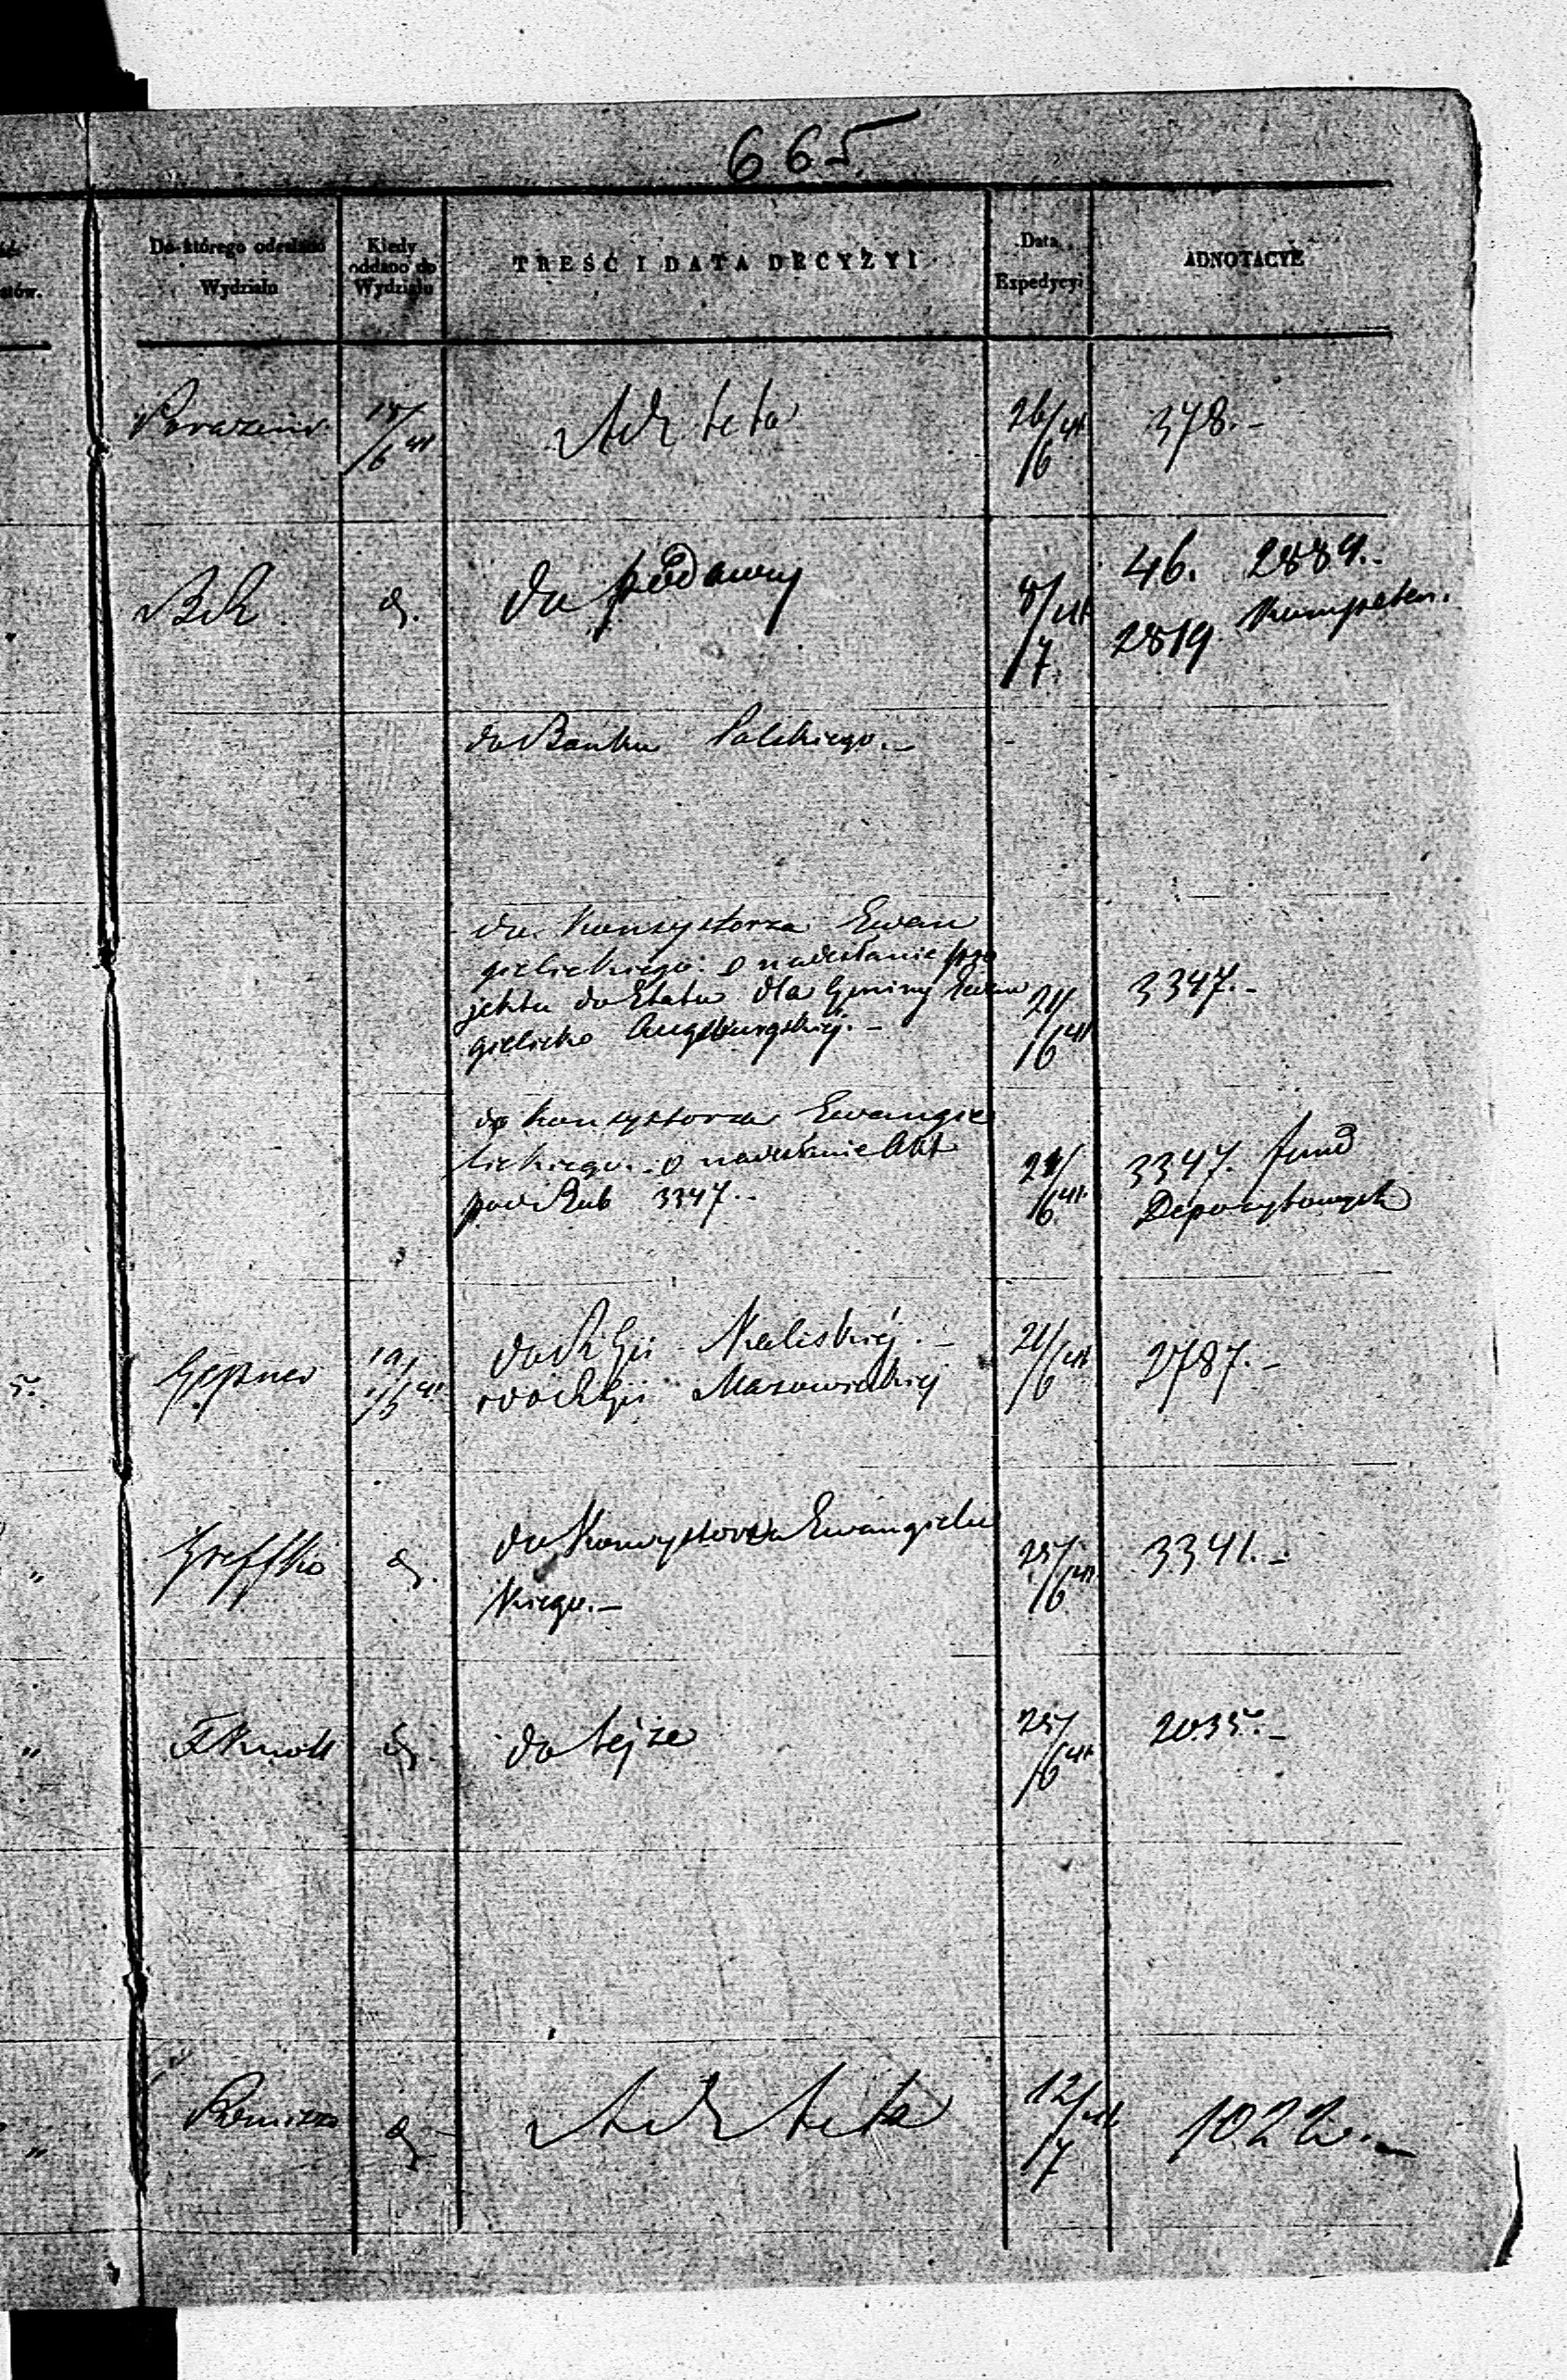 665.
Do którego odesłano
Wydziału
Kiedy
oddano do
Wydziału
TREŚĆ I DATA DECYZYI
Data
Expedycyi
ADNOTACYE
18/6 41
Ad Acta
26/6 41
378.-
d.
do podawcy
8/7 41
46. 2884.-
2819 Kompeten.
do Banku Polskiego.-
do Konsystorza Ewan
gielickiego: o nadesłanie pro
jektu do Etatu dla Gminy Ewan
gielicko Augsburgskiej.-
21/6 41
3347.-
do Konsystorza Ewangie
lickiego.. o nadesłanie Akt
pod Rub 3347..
21/6 41
3347. fund
Depozytowych
Geppner
do RGu Kaliskiéj.-
do RGu Mazowieckiej
21/6 41
2787.-
d.
do Konsystorza Ewangielic
kiego.-
25/6 41
3341.-
d.
do tejże
25/6 41
2035.-
d.
Ad Acta
12/7 41
1022.-